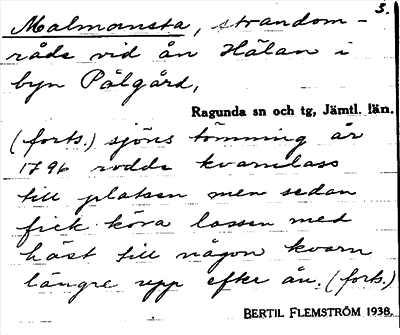 3.
Malmansta, strandom-
råde vid ån Hälan i
byn Pålgård,
Ragunda sn och tg, Jämtl. län.
(forts.) sjöns tömning år
1796 rodde kvarnlass
till platsen men sedan
fick köra lassen med
häst till någon kvarn
längre upp efter ån. (forts.)
BERTIL FLEMSTRÖM 1938.